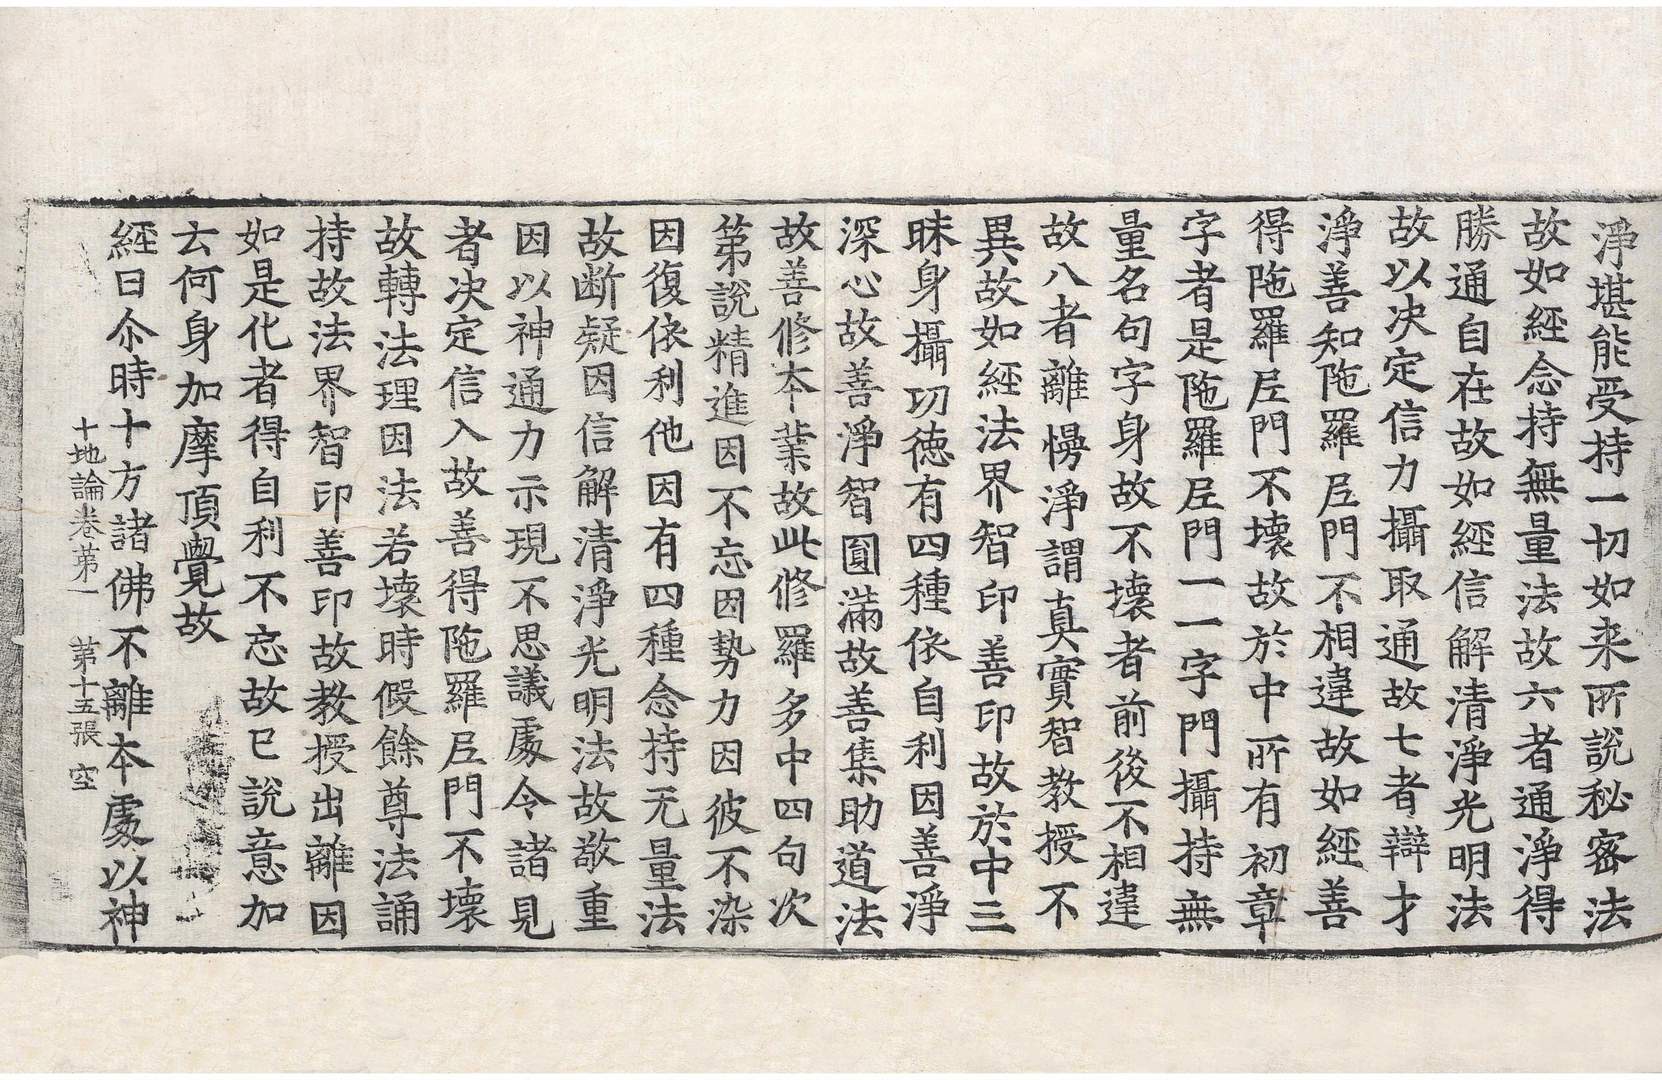 淨堪能受持一切如来所說秘密法
故如經念持無量法故六者通淨得
勝通自在故如經信解清淨光明法
故以决定信力攝取通故七者辯才
淨善知陁羅尼門不相違故如經善
得陁羅尼門不壞故於中所有初章
字者是陁羅尼門一一字門攝持無
量名句字身故不壞者前後不相違
故八者離慢淨謂真實智教授不
異故如經法界智印善印故於中三
昧身攝功德有四種依自利因善淨
深心故善淨智圓滿故善集助道法
故善修夲業故此修羅多中四句次
第說精進因不忘因势力因彼不染
因復依利他因有四種念持无量法
故断疑因信解清淨光明法故敬重
因以神通力示現不思議處令諸見
者决定信入故善得陁羅尼門不壞
故轉法理因法若壞時假餘尊法誦
持故法界智印善印故教授出離因
如是化者得自利不忘故已說意加
云何身加摩頂覺故
經曰尒時十方諸佛不離夲處以神
十地論卷苐一　第十五張　空